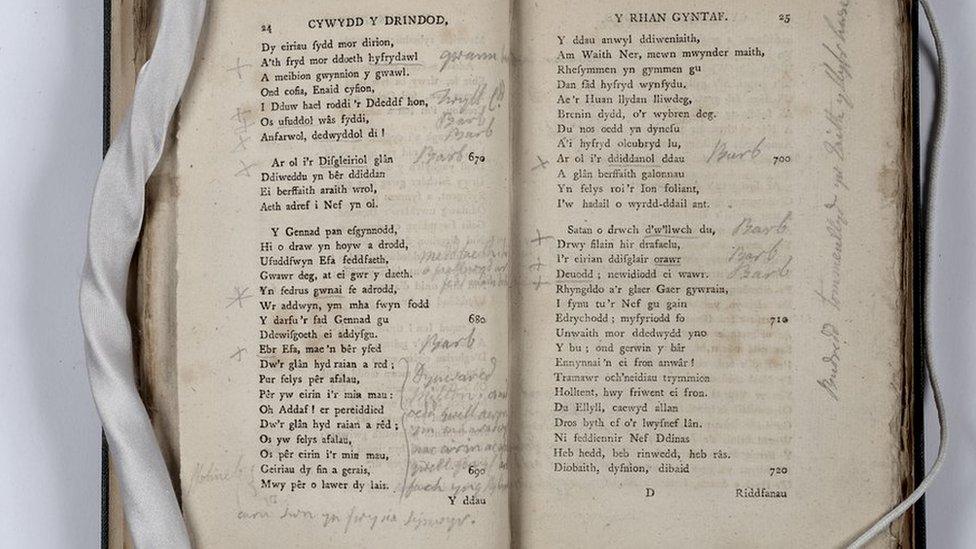 24 CYWYDD Y DRINDOD,
Dy eiriau ſydd mor dirion,
A'th fryd mor ddoeth hyfrydawl
A meibion gwynnion y gwawl.
Ond cofia, Enaid cyfion,
I Dduw hael roddi'r Ddeddf hon, Twyll
Os ufuddol wâs fyddi, Barb
Anfarwol, dedwyddol di! Barb
Ar ol i'r Diſgleiriol glân Barb 670
Ddiweddu yn bêr ddiddan
Ei berffaith araith wrol,
Aeth adref i Nef yn ol.
Y Gennad pan eſgynnodd,
Hi o draw yn hoyw a drodd,
Ufuddfwyn Efa feddfaeth,
Gwawr deg, at ei gwr y daeth.
Yn fedrus gwnai fe adrodd,
Wr addwyn, ym mha fwyn fodd
Y darfu'r fad Gennad gu 680
Ddewiſgoeth ei addyſgu.
Ebr Efa, mae'n bêr yſed Barb
D'wr glân hyd raian a red;
Pur felys pêr afalau,
Pêr yw eirin i'r mia mau:
Oh Addaf! er pereiddied
D'wr glân hyd raian a rêd;
Os yw felys afalau,
Os pêr eirin i'r min mau,
Geiriau dy fin a gerais, 690
Mwy pêr o lawer dy lais.
Y ddau
Y RHAN GYNTAF. 25
Y ddau anwyl ddiweniaith,
Am Waith Ner, mewn mwynder maith,
Rheſymmen yn gymmen gu
Dan fâd hyfryd wynfydu.
Ae'r Huan llydan lliwdeg,
Brenin dydd, o'r wybren deg.
Du nos oedd yn dyneſu
A'i hyfryd oleubryd lu,
Ar ol i'r ddiddanol ddau Barb 700
A glân berffaith galonnau
Yn felys roi'r Ion foliant,
I'w hadail o wyrdd-ddail ant.
Satan o drwch d'w'llwch du, Barb
Drwy filain hir drafaelu,
I'r eirian ddiſglair orawr Barb
Deuodd; newidiodd ei wawr. Barb
Rhyngddo a'r glaer Gaer gywrain,
I fynu tu'r Nef gu gain
Edrychodd; myfyriodd fo 710
Unwaith mor ddedwydd yno
Y bu; ond gerwin y bâr
Ennynnai'n ei fron anwâr!
Tramawr och'neidiau trymmion
Holltent, hwy friwent ei fron.
Du Ellyll, caewyd allan
Dros byth ef o'r lwyſnef lân.
Ni feddiennir Nef Ddinas
Heb hedd, beb rinwedd, heb râs.
Diobaith, dyfnion, dibaid 720
D Riddfanau